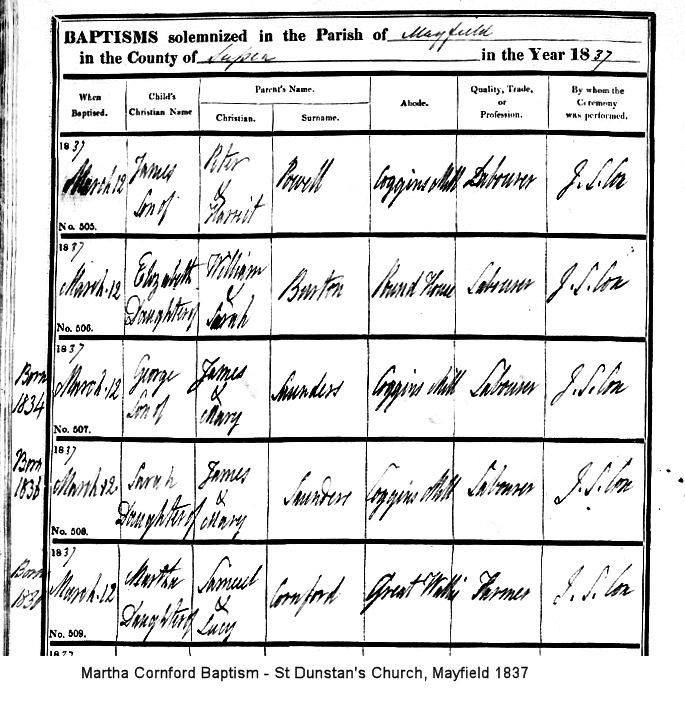 BAPTISMS solemnized in the Parish of Mayfield
in the County of Sussex in the Year 1837
When Baptised.
Child's Christian Name
Parent's Name.
Christian.
Surname.
Abode.
Quality, Trade, or Profession.
By whom the Ceremony was performed.
1837
March 12
No. 505.
James
Son of
Peter
&
Harriet
Powell
Coggins Mill
Labourer
J. S. Cox
1837
March. 12
No. 506.
Elizabeth
Daughter of
William
&
Sarah
Burton
Pound House
Labourer
J. S. Cox
Born
1834
1837
March. 12
No. 507.
George
Son of
James
&
Mary
Saunders
Coggins Mill
Labourer
J. S. Cox
Born
1836
1837
March 12
No. 508.
Sarah
Daughter of
James
&
Mary
Saunders
Coggins Mill
Labourer
J. S. Cox
Born
1837
March. 12
No. 509.
Martha
Daughter of
Samuel
&
Lucy
Cornford
Great Wallis
Farmer
J. S. Cox
Martha Cornford Baptism - St Dunstan's Church, Mayfield 1837